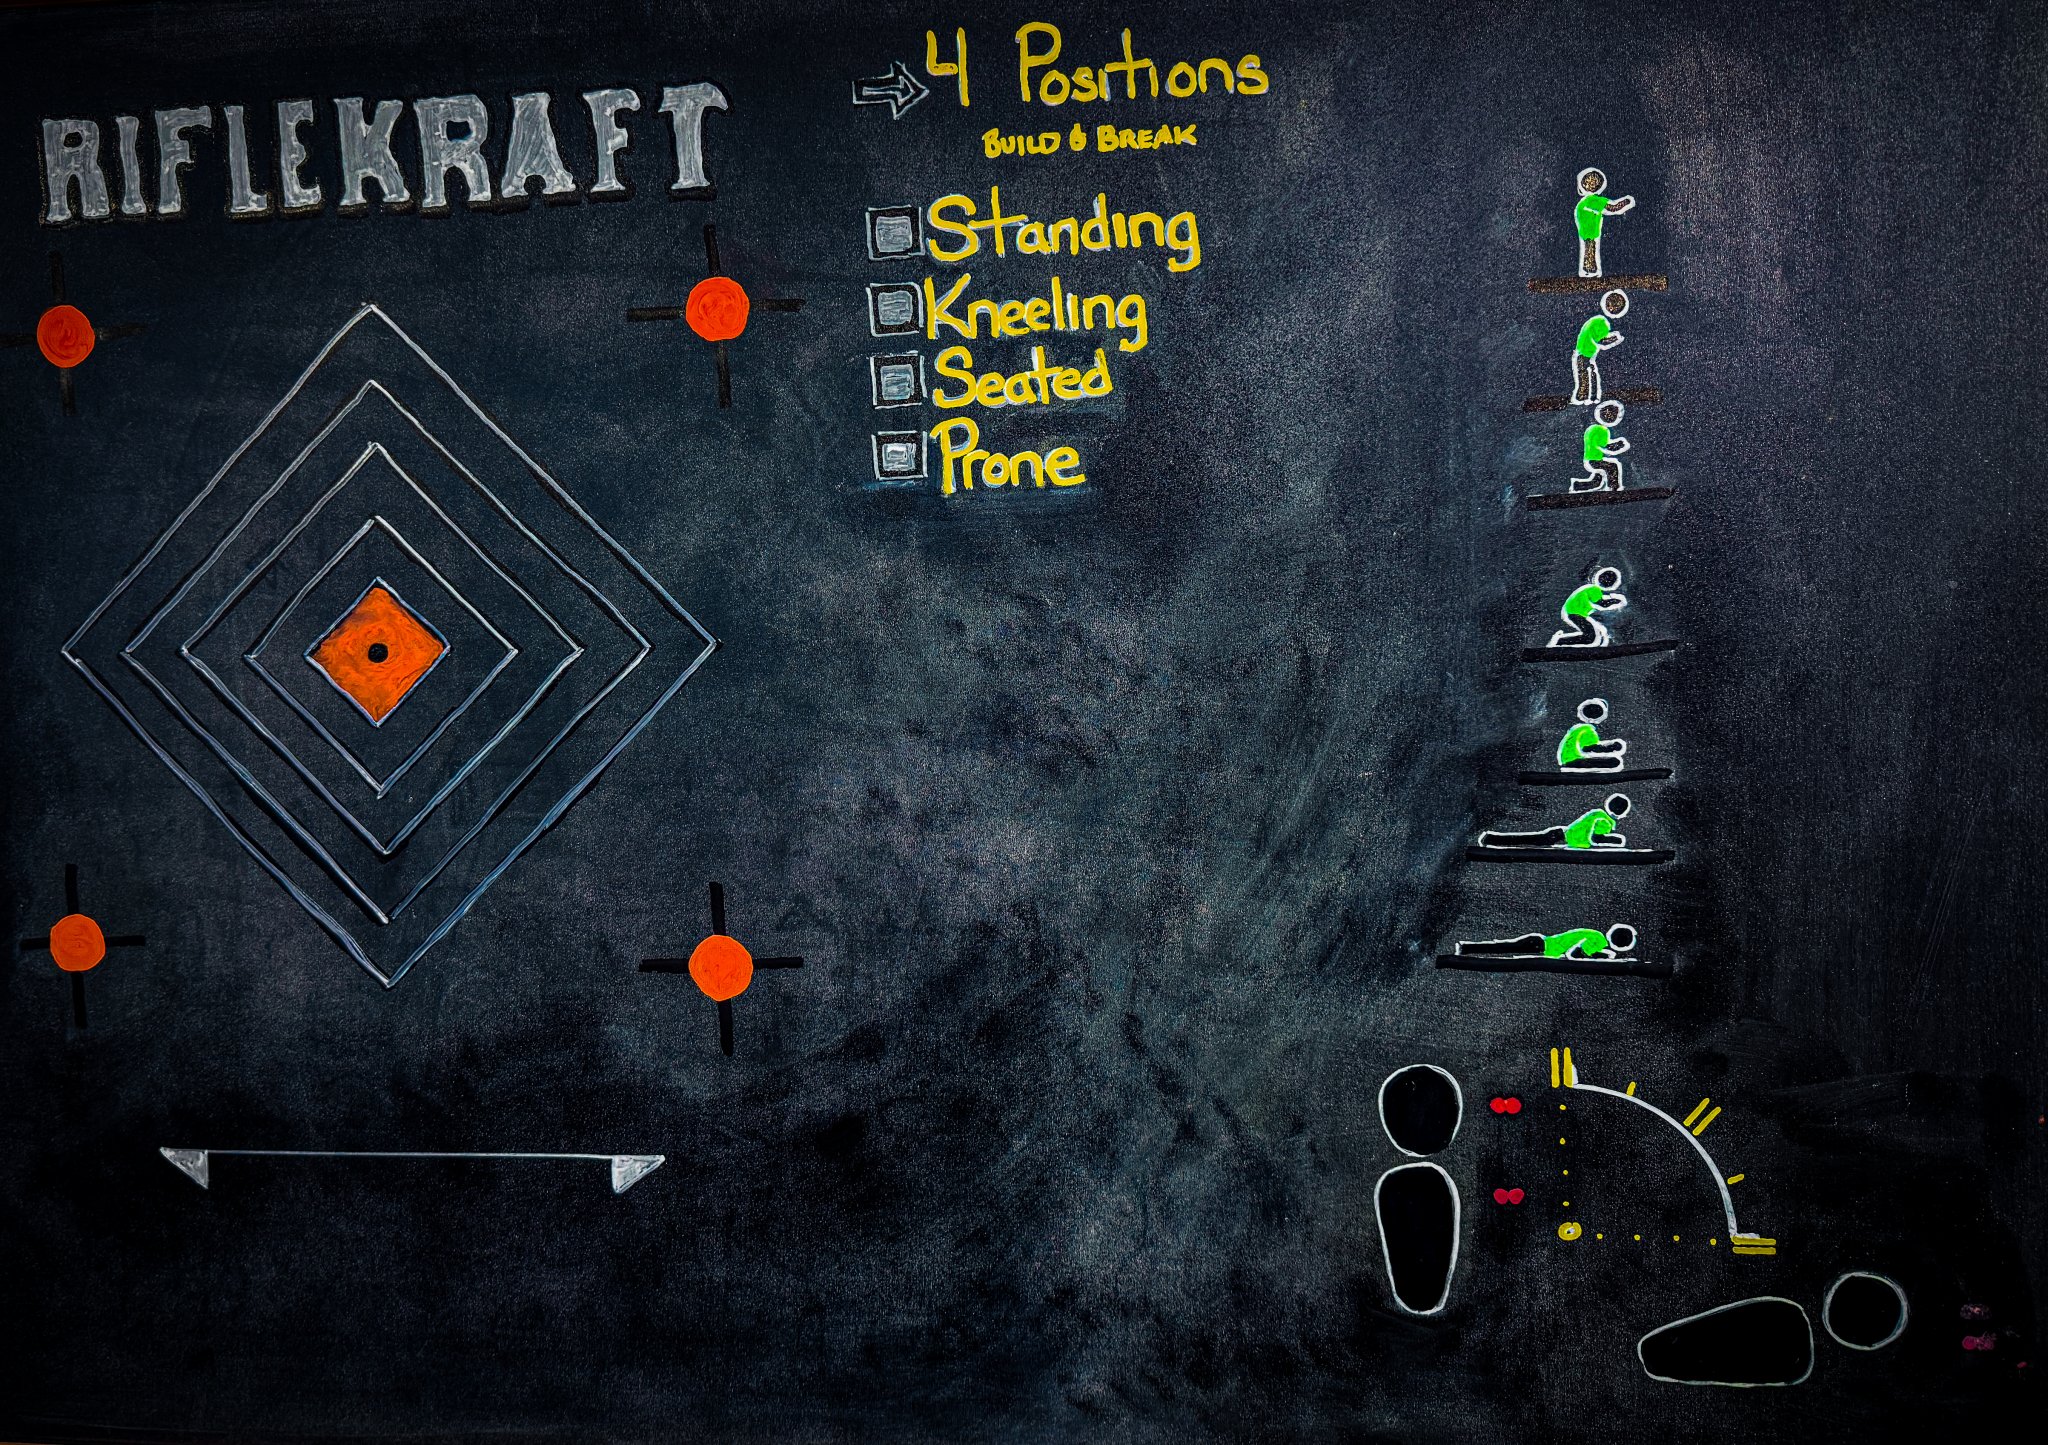 RIFLEKRAFT
4 Positions
BUILD & BREAK
Standing
Kneeling
Seated
Prone